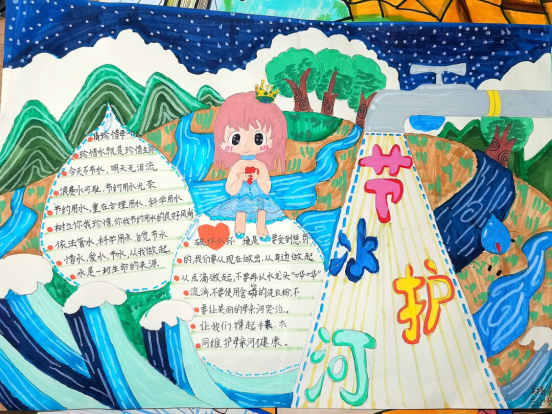 请珍惜每一
珍惜水就是珍惜生
今天不节水，明天无泪流
浪费水可耻，节约用水光荣
节约用水，重在合理用水，科学用水
树立你我珍惜，你我节约用水的良好风尚
依法管水，科学用水，自觉节水
惜水，爱水，节水，从我做起
水是一切生命的来源
的，我们要从现在做起，从身边做起
从点滴做起，不要再让水龙头
流淌，不要使用含磷的洗衣粉，不
要让美丽的母亲河哭泣。
让我们携起手来，共
同维护母亲河健康。
节
水
护
河